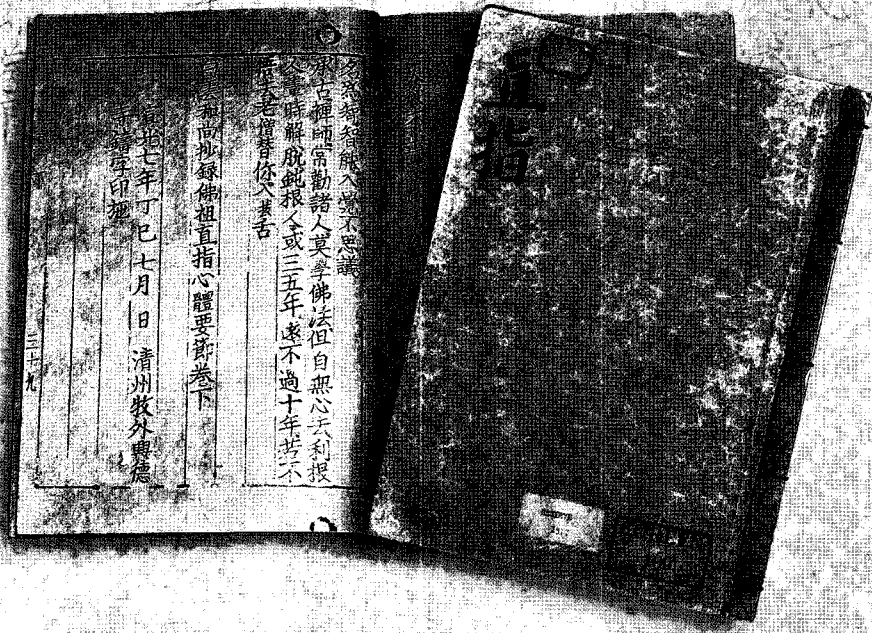 智能入毫不思議
承古禪師常勸諸人莫學佛法但自無心去利根
人晝時解脫鈍根人或三五年遠不過十年若不
悟去老僧替你入拔舌
和尙抄錄佛祖直指心體要節卷下
宣光七年丁巳七月 日 清州牧外興德
寺鑄字印施
三十九
直指